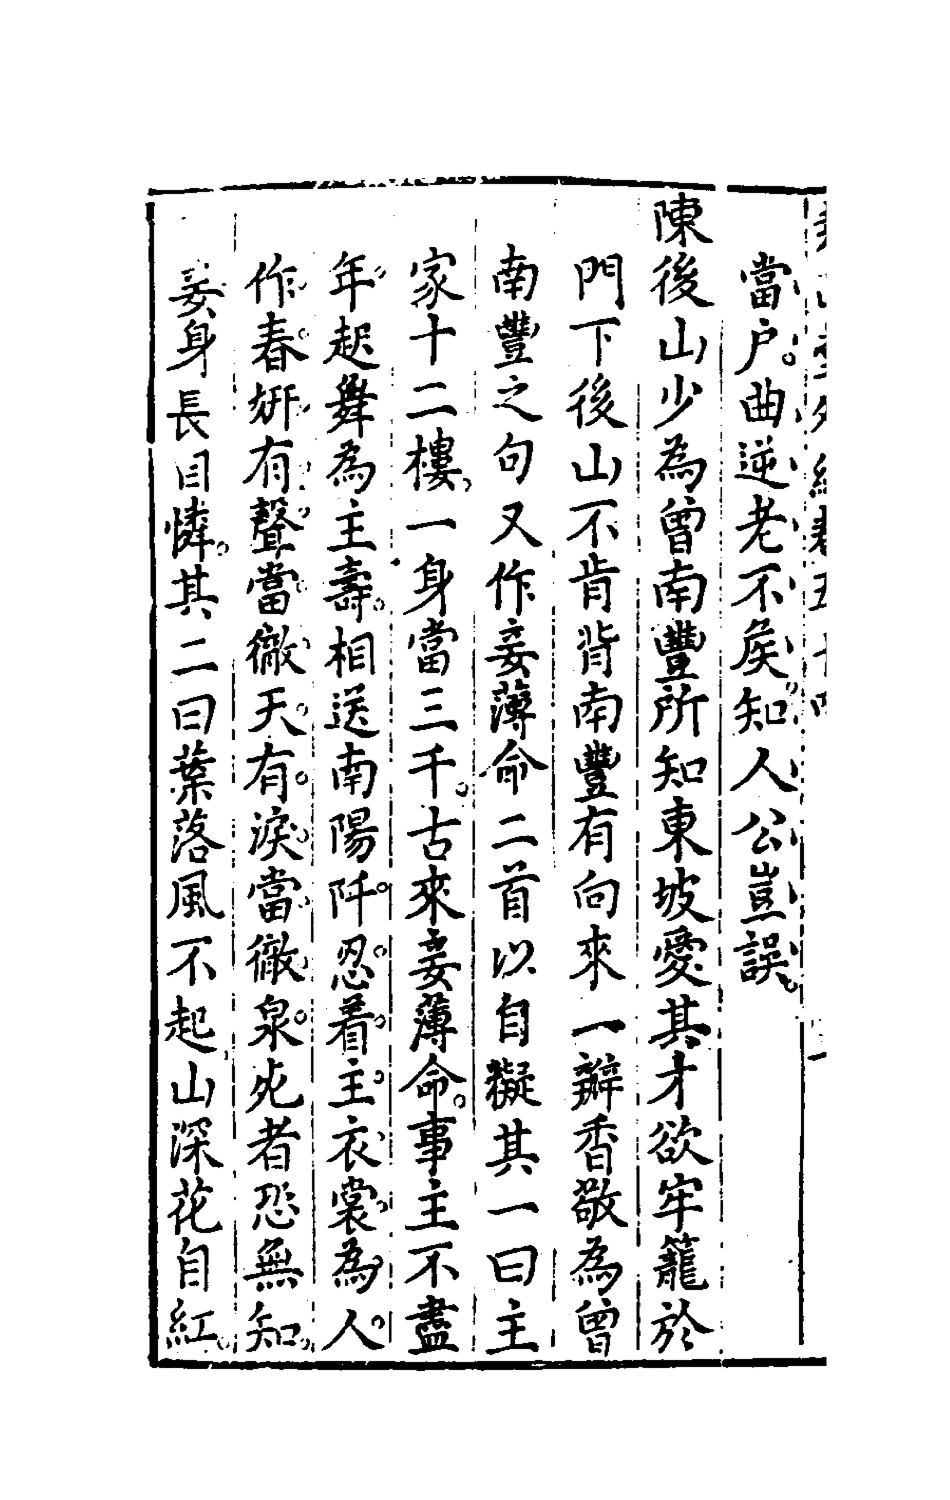 當户曲逆老不矦知人公豈誤
陳後山少為曾南豐所知東坡愛其才欲牢籠於
門下後山不肯背南豐有向來一辦香敬為曾
南豐之句又作妾薄命二首以自擬其一曰主
家十二樓一身當三千古來妾薄命事主不盡
年起舞為主壽相送南陽阡忍着主衣裳為人
作春姸有聲當徹天有淚當徹泉死者恐無知
妾身長自憐其二曰葉落風不起山深花自紅